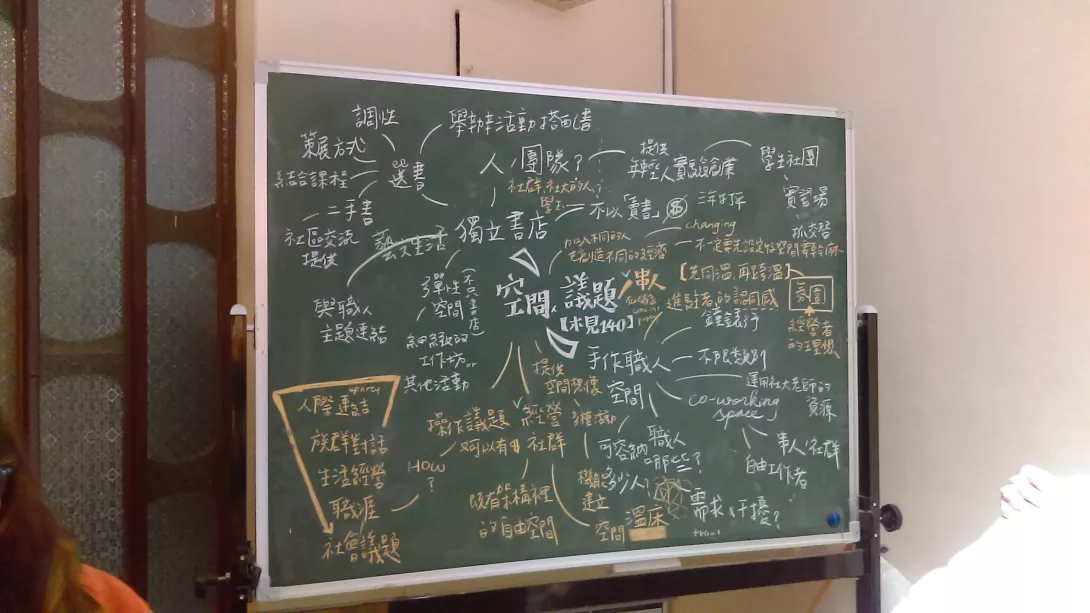 調性
舉辦活動搭配書
策展方式
選書
結合課程
二手書
社區交流
提供
人/團隊?
提供
年輕人實驗創業
學生社團
實習場
抓交替
社群,社大的人,?
學生
獨立書店
不以「賣書」
三年打平
changing
加入不同的人
創造不同的經濟
不一定要先設定好空間要幹麻
藝文生活
與職人
主題連結
彈性
空間
(不只書店)
細緻的
工作坊
其他活動
空間、議題
【未見140】
串人
【先同溫,再跨溫】
進駐者的認同感
氛圍
+
經營者
的理想
鐘錶行
手作職人
空間
不限類別
運用社大老師的
資源
co-working
space
串人/社群
自由工作者
提供
空間想像
人際連結
族群對話
生活經營
職涯
社會議題
操作議題
又可以有$
HOW
?
經營
社群
多種活動
既有架構裡
的自由空間
可容納職人
哪些?
多少人?
建立
空間溫床
需求&干擾?